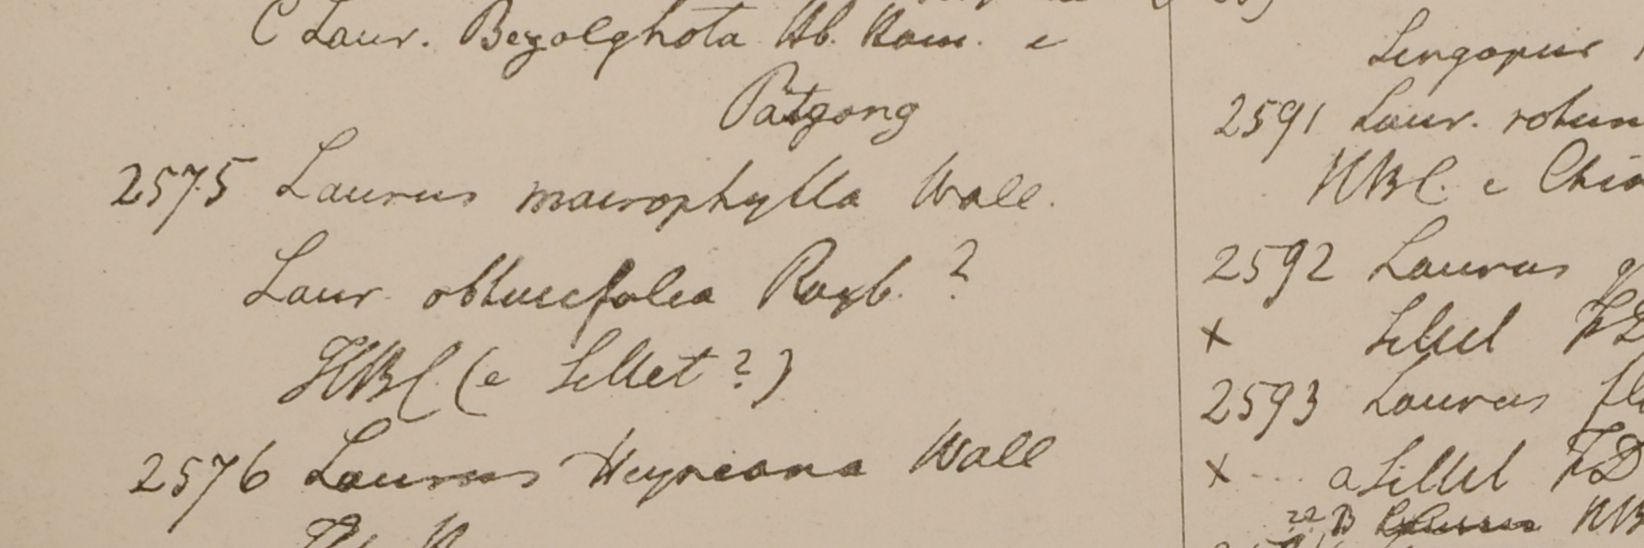 C Laur. Bezolghota Hb. Ham. e
Patgong
2575 Laurus macrophylla Wall.
Laur. obtusifolia Roxb. ?
HBC. (e Sillet ?)
2576 Laurus Heyneana Wall
Singapur
2591 Laur. rotun
HBC. e Chi
2592 Laurus
x Sillet FD
2593 Laurus fl
x a Sillet FD
B Laurus HB